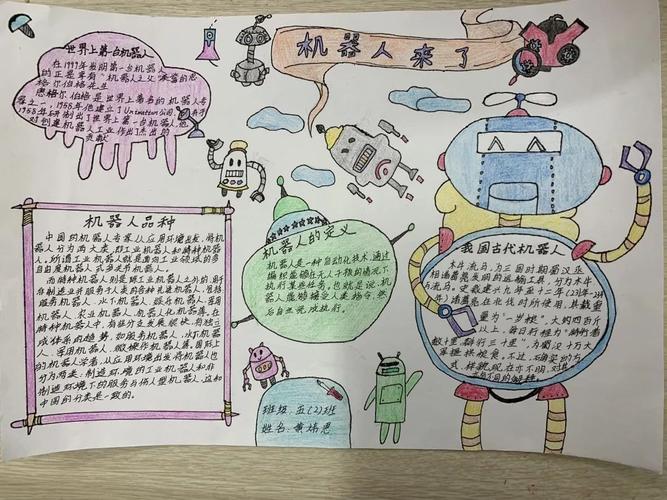 机器人来了
世界上第一台机器人
在1997年发明第一台机器人
的正是享有"机器人之父"美誉的恩
格尔伯格先生
恩格尔伯格是世界上著名的机器人专
家之一，1958年他建立了Unimation公司，并于
1959年研制出了世界上第一台机器人，他
对创建机器人工业作出了杰出的
贡献
机器人品种
中国的机器人专家从应用环境出发，将机
器人分为两大类，即工业机器人和特种机器
人。所谓工业机器人就是面向工业领域的多
自由度机器人或多关节机器人。
而特种机器人则是除工业机器人之外的，用于
非制造业并服务于人类的各种先进机器人，包括
服务机器人、水下机器人、娱乐机器人、军用
机器人、农业机器人、机器人化机器等。在
特种机器人中，有些分支发展很快，有独立
成体系的趋势，如服务机器人、水下机器
人、军用机器人、微操作机器人等。国际上
的机器人学者，从应用环境出发将机器人也
分为两类：制造环境下的工业机器人和非
制造环境下的服务与仿人型机器人，这和
中国的分类是一致的。
机器人的定义
机器人是一种自动化技术，通过
编程能够在无人干预的情况下
执行某些任务。也就是说，机
器人能够接受人类指令，然
后自主完成执行。
我国古代机器人
木牛流马，为三国时期蜀汉丞
相诸葛亮发明的运输工具，分为木牛
与流马。史载建兴九年至十二年(231年-234
年)诸葛亮在北伐时所使用，其载重
量为"一岁粮"，大约四百斤
以上，每日行程为"特行者
数十里，群行三十里"，为蜀汉十万大
军提供粮食。不过，确实的方
式、样貌现在亦不明，对其
亦有不同的解释。
班级：五(2)班
姓名：黄炜恩